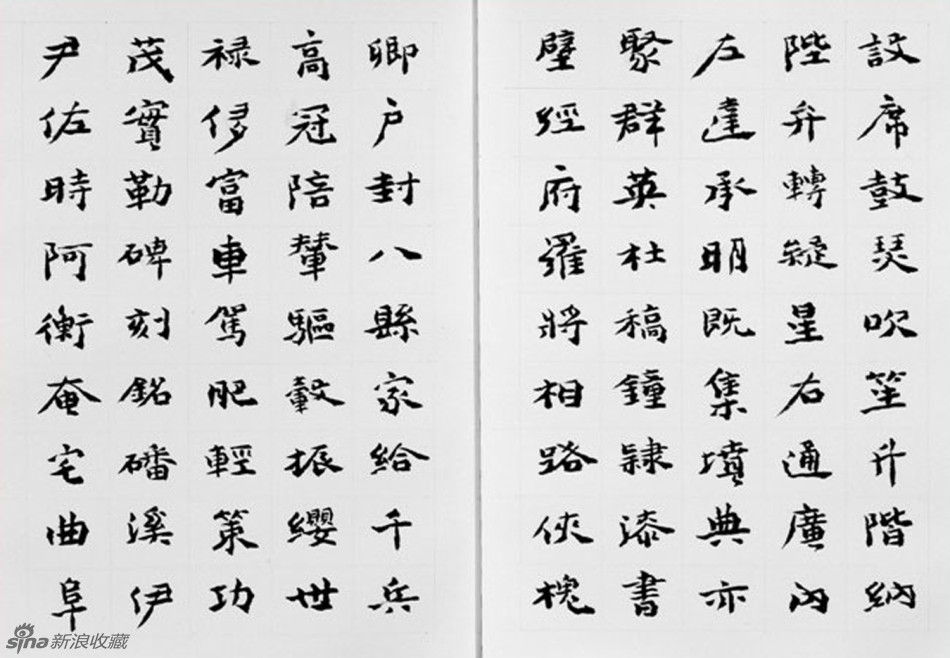 設席鼓瑟吹笙升階納
陛弁轉疑星右通廣內
左達承明既集墳典亦
聚群英杜稿鐘隸漆書
壁經府羅將相路俠槐
卿户封八縣家給千兵
高冠陪輦驅轂振纓世
禄侈富車駕肥輕策功
茂實勒碑刻銘磻溪伊
尹佐時阿衡奄宅曲阜
sina新浪收藏